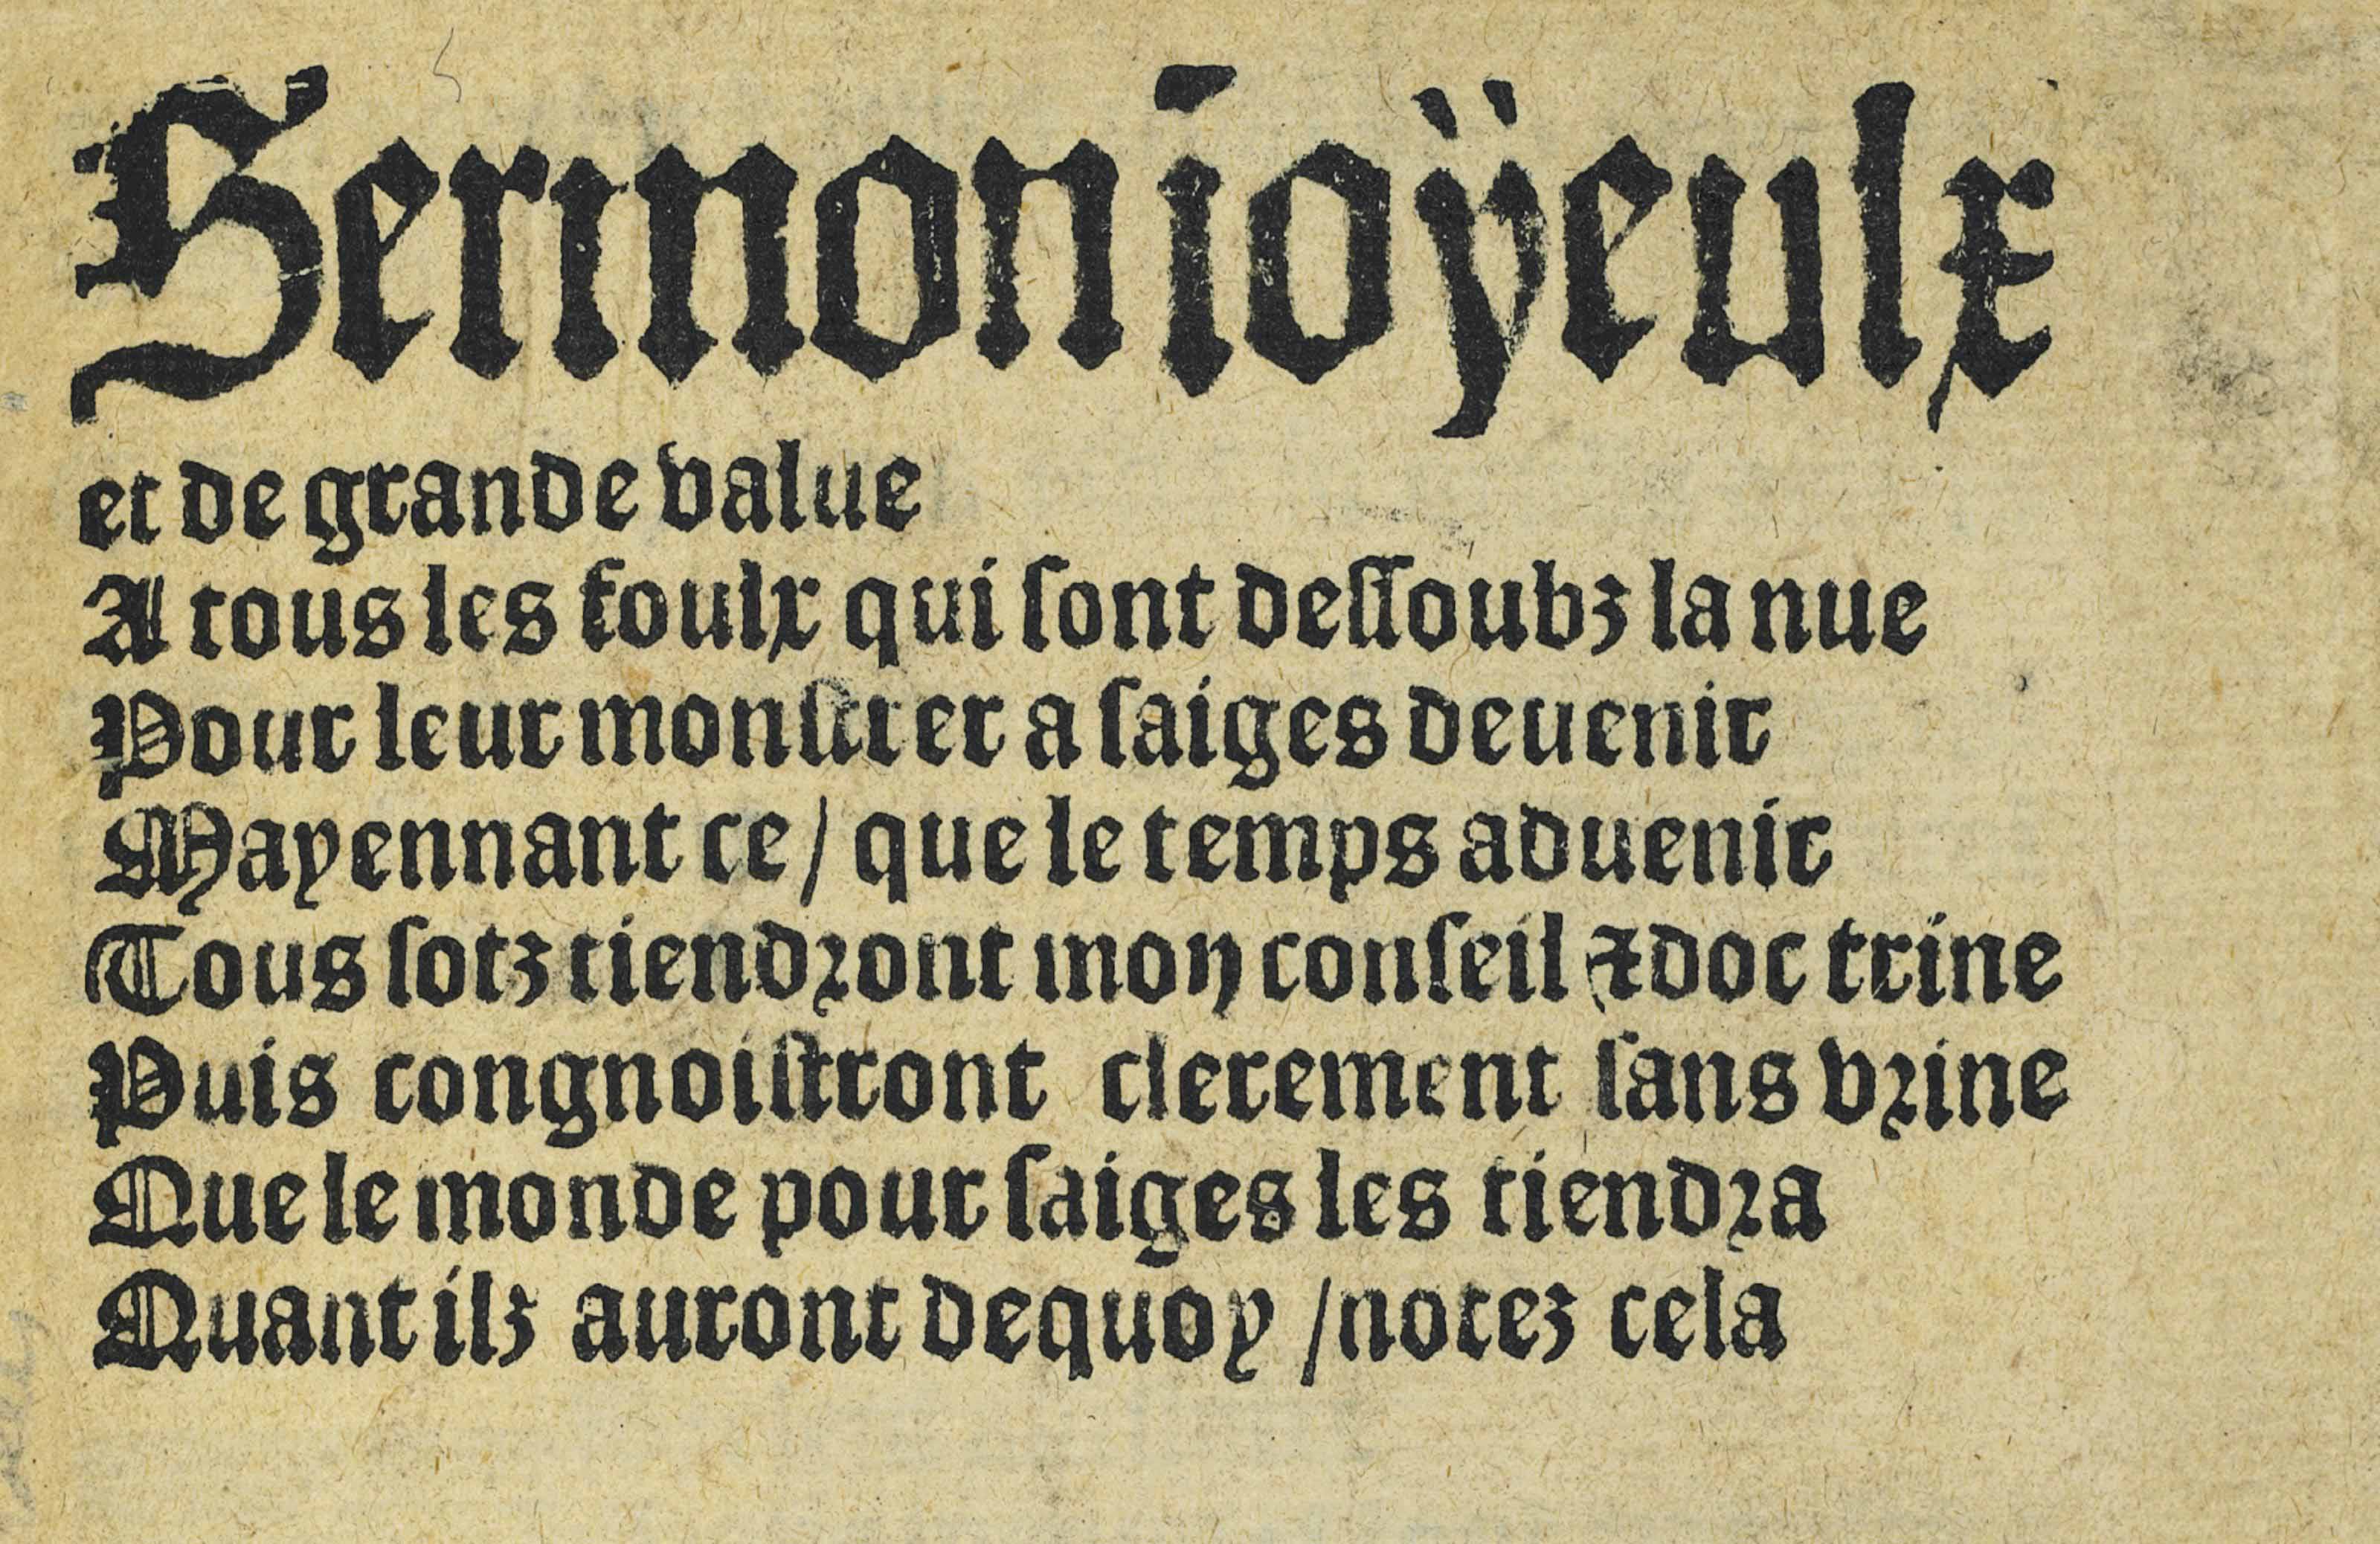 Sermon ioÿeulx
et de grande value
A tous les foulx qui sont dessoubz la nue
Pour leur monstrer a saiges deuenir
Mayennant ce / que le temps aduenir
Tous sotz tiendront mon conseil & doctrine
Puis congnoistront clerement sans vrine
Que le monde pour saiges les tiendra
Quant ilz auront dequoy / notez cela